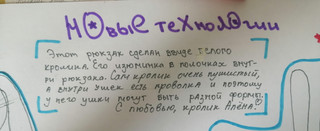 Новые технологии
Этот рюкзак сделан ввиде белого
кролика. Его изюминка в полочках внут-
ри рюкзака. Сам кролик очень пушистый,
а внутри ушек есть проволка и поэтому
у него ушки могут быть разной формы.
С любовью, кролик Алёна.